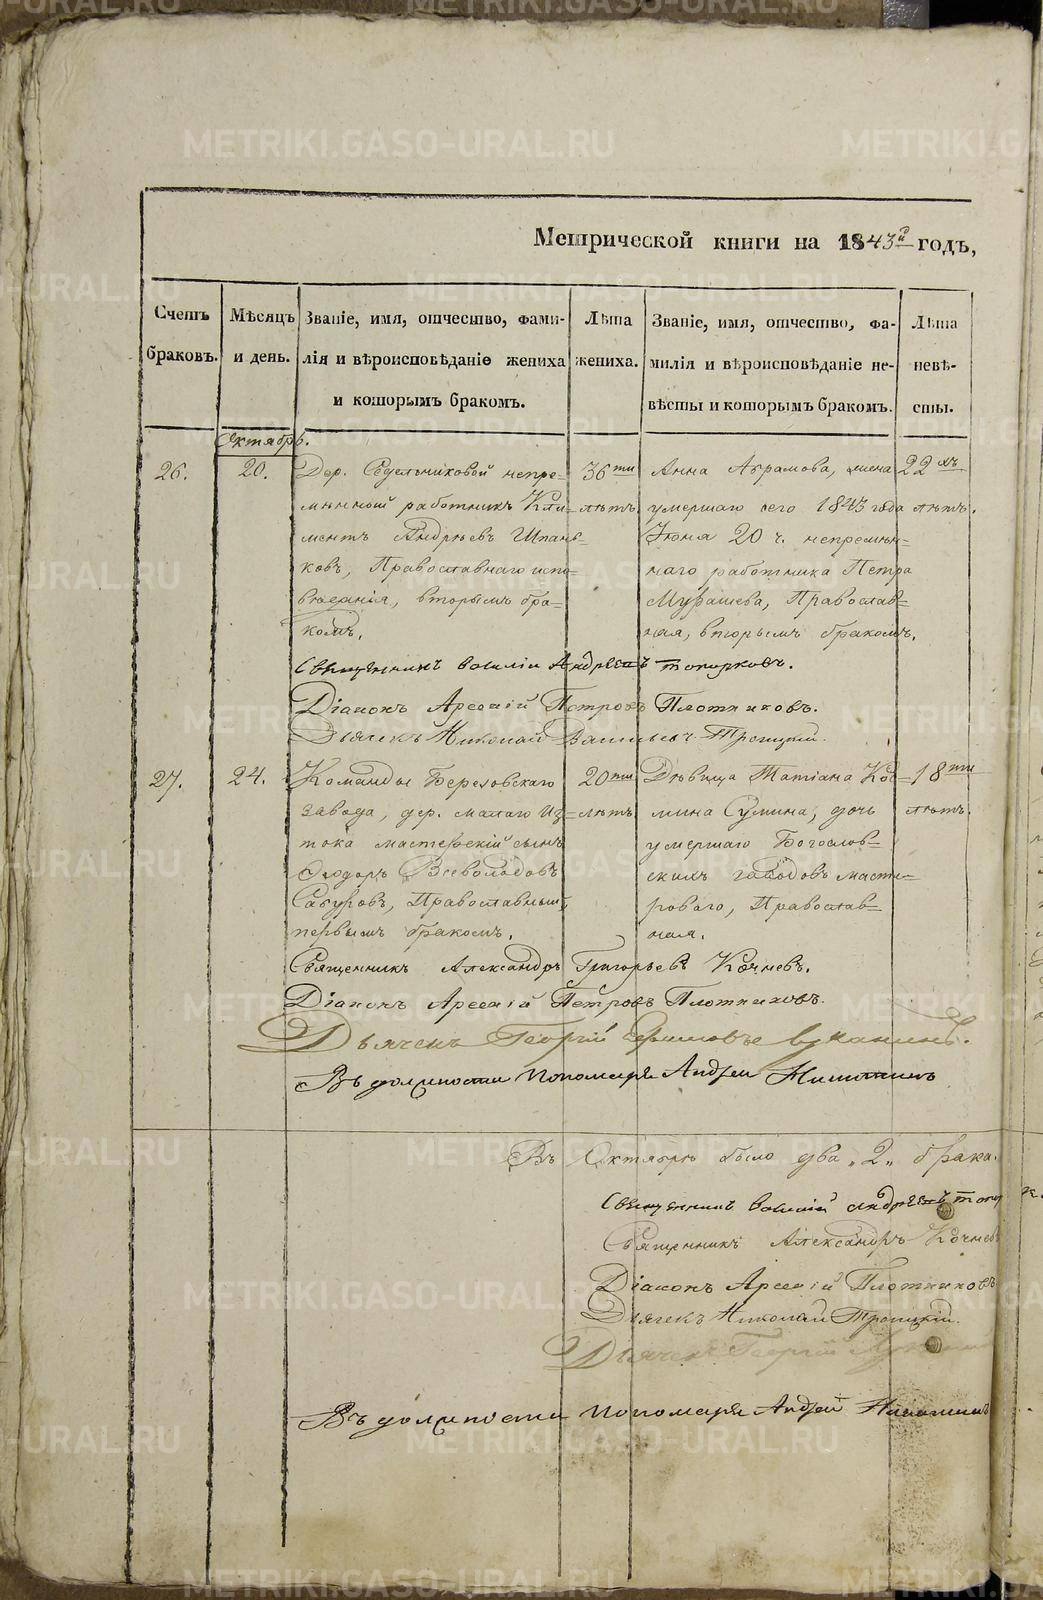 METRIKI.GASO-URAL.RU
Метрической книги на 1843й годъ,
Счетъ браковъ.
Мѣсяцъ и день.
Званіе, имя, отчество, фами-
лія и вѣроисповѣданіе жениха
и которымъ бракомъ.
Лѣта
жениха.
Званіе, имя, отчество, фа-
милія и вѣроисповѣданіе не-
вѣсты и которымъ бракомъ.
Лѣта
невѣ-
сты.
Октябрь.
26.
20.
Дер. Седельниковой непре-
мѣнной работникъ Кли-
ментъ Андрѣевъ Шпань-
ковъ, Православнаго испо-
вѣданія, вторымъ бра-
комъ.
36ти
лѣтъ
Анна Абрамова, жена
умершаго сего 1843 года
Іюня 20 ч. непремѣн-
наго работника Петра
Мурашева, Православ-
ная, вторымъ бракомъ.
22хъ
лѣтъ.
Священникъ Василій Андреевъ Топорковъ.
Діаконъ Арсеній Петровъ Плотниковъ.
Дьячекъ Николай Васильевъ Троицкій.
27.
24.
Команды Березовскаго
завода, дер. малаго Из-
тока мастерскій сынъ
Ѳеодоръ Всеволодовъ
Сабуровъ, Православный,
первымъ бракомъ.
20ти
лѣтъ
Дѣвица Татіана Коз-
мина Сумина, дочь
умершаго Богослов-
скихъ заводовъ масте-
роваго, Православ-
ная.
18ти
лѣтъ.
Священникъ Александръ Григорьевъ Кочневъ.
Діаконъ Арсеній Петровъ Плотниковъ.
Дьячекъ Георгій
Въ должности Пономаря Андрей Никитинъ
Въ Октябрѣ было два „2„ брака.
Священникъ Василій Андреевъ Топор
Священникъ Александръ Кочневъ
Діаконъ Арсеній Плотниковъ
Дьячекъ Николай Троицкій.
Дьячекъ Георгій
Въ должности Пономаря Андрей Никитинъ